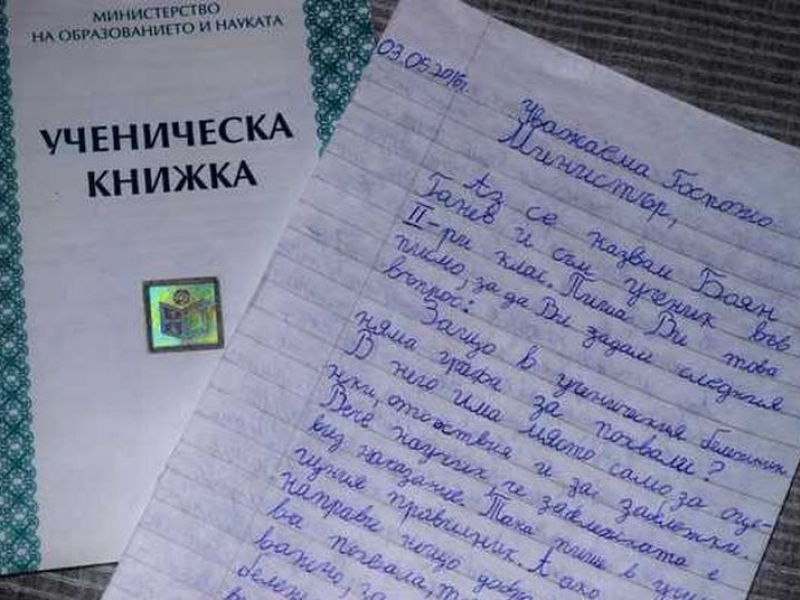 МИНИСТЕРСТВО
НА ОБРАЗОВАНИЕТО И НАУКАТА
УЧЕНИЧЕСКА
КНИЖКА
03.05.2016г.
Уважаема Госпожо
Министър,
Аз се казвам Боян
Ганев и съм ученик във
II-ри клас. Пиша Ви това
писмо, за да Ви задам следния
въпрос:
Защо в ученическия бележник
няма графа за похвали?
В него има място само за оце-
нки, отсъствия и за забележки.
Вече научих, че забележката е
вид наказание. Така пише в учили-
щния правилник. А ако
направи нещо добро
ва похвала,
важно, за
бележ